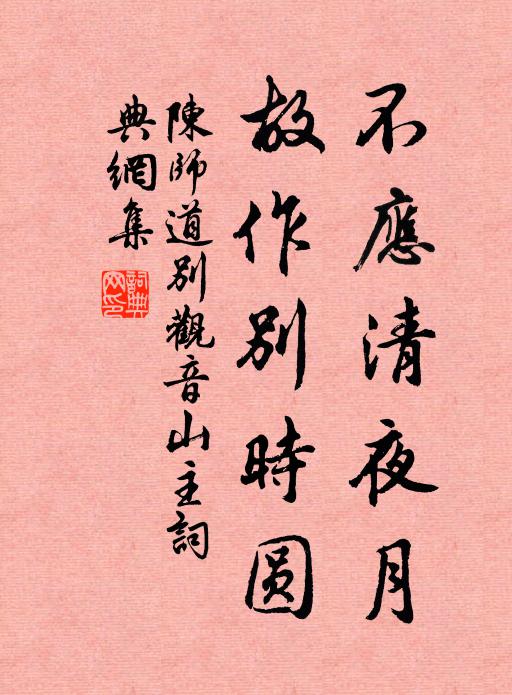 不應清夜月
故作別時圆
陳師道別觀音山主詞
典網集
詞典网印